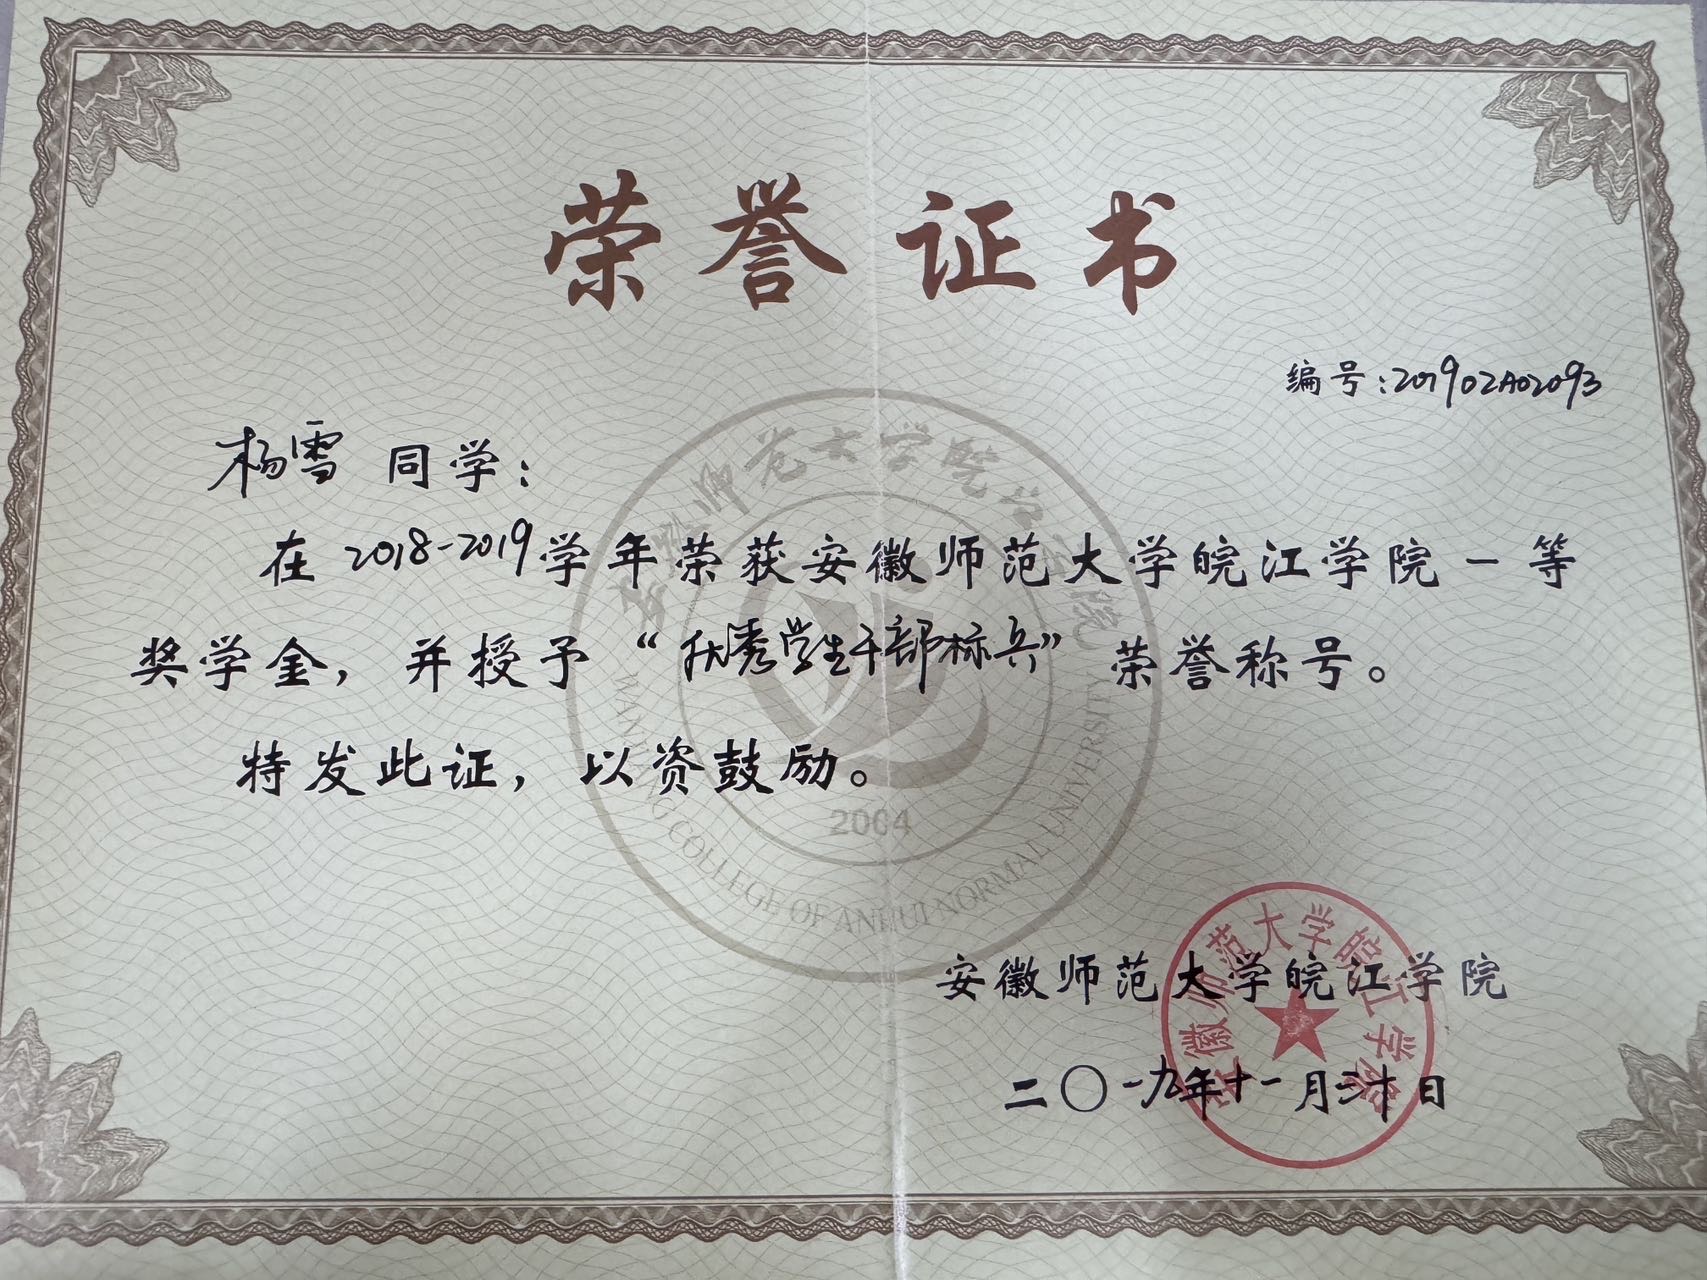 荣誉证书
编号:201902A02093
杨雪 同学:
在2018-2019学年荣获安徽师范大学皖江学院一等
奖学金,并授予“优秀学生干部标兵”荣誉称号。
特发此证,以资鼓励。
安徽师范大学皖江学院
2004
WANJIANG COLLEGE OF ANHUI NORMAL UNIVERSITY
安徽师范大学皖江学院
二〇一九年十一月二十日
安徽师范大学皖江学院